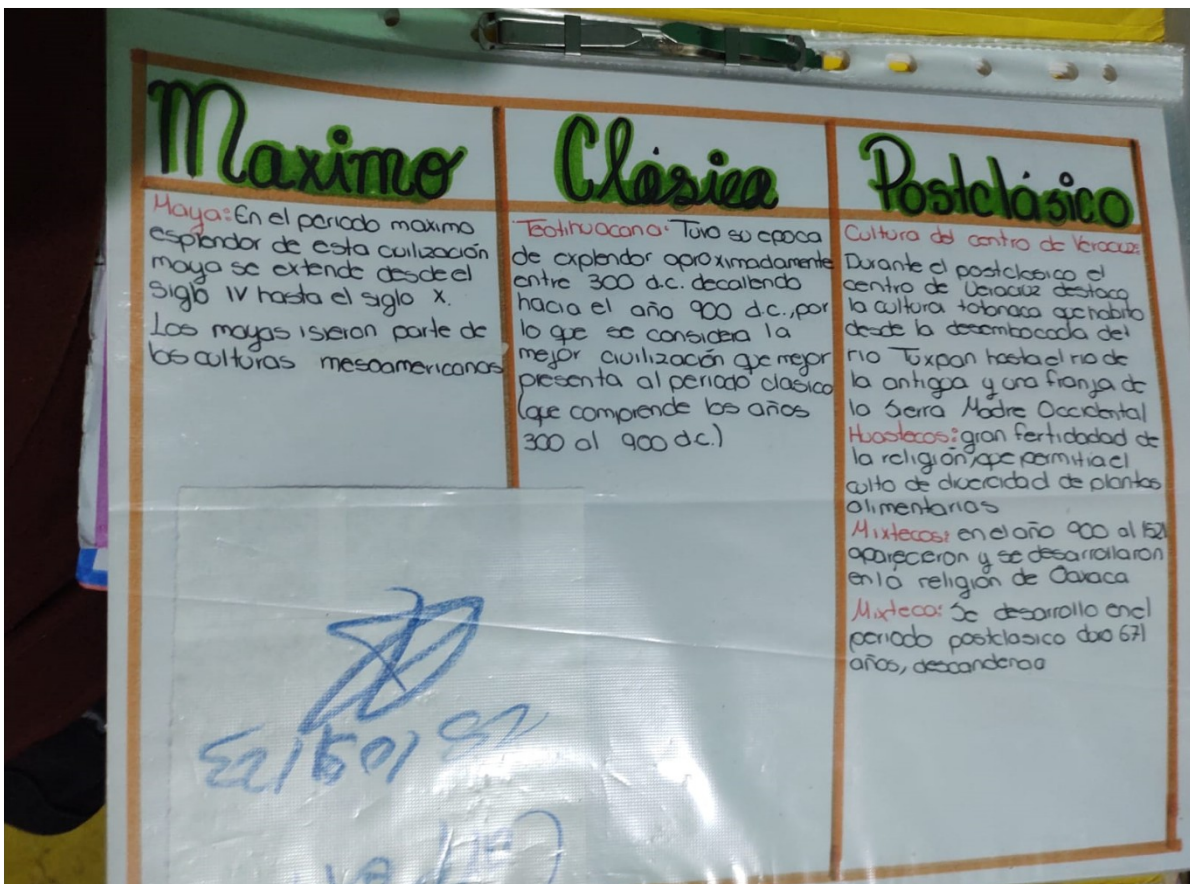 Maximo
Maya: En el periodo maximo
esplendor de esta civilización
maya se extende desde el
siglo IV hasta el siglo X.
Los mayas isieron parte de
las culturas mesoamericanas
Clásica
Teotihuacana: Tuvo su epoca
de explendor aproximadamente
entre 300 d.c. decallendo
hacia el año 900 d.c., por
lo que se considera la
mejor civilización que mejor
presenta al periodo clasico
(que comprende los años
300 al 900 d.c.)
Postclásico
Cultura del centro de Veracuz:
Durante el postclasico el
centro de Veracruz destaco
la cultura totonaca que habito
desde la desembocada del
rio Tuxpan hasta el rio de
la antigua y una franja de
la Sierra Madre Occidental
Huastecos: gran fertidadad de
la religión, que permitia el
culto de divercidad de plantas
alimentarias
Mixtecos: en el año 900 al 1521
apareceron y se desarrollaron
en la religión de Oaxaca
Mixteca: Se desarrollo en el
periodo postclasico duro 671
años,